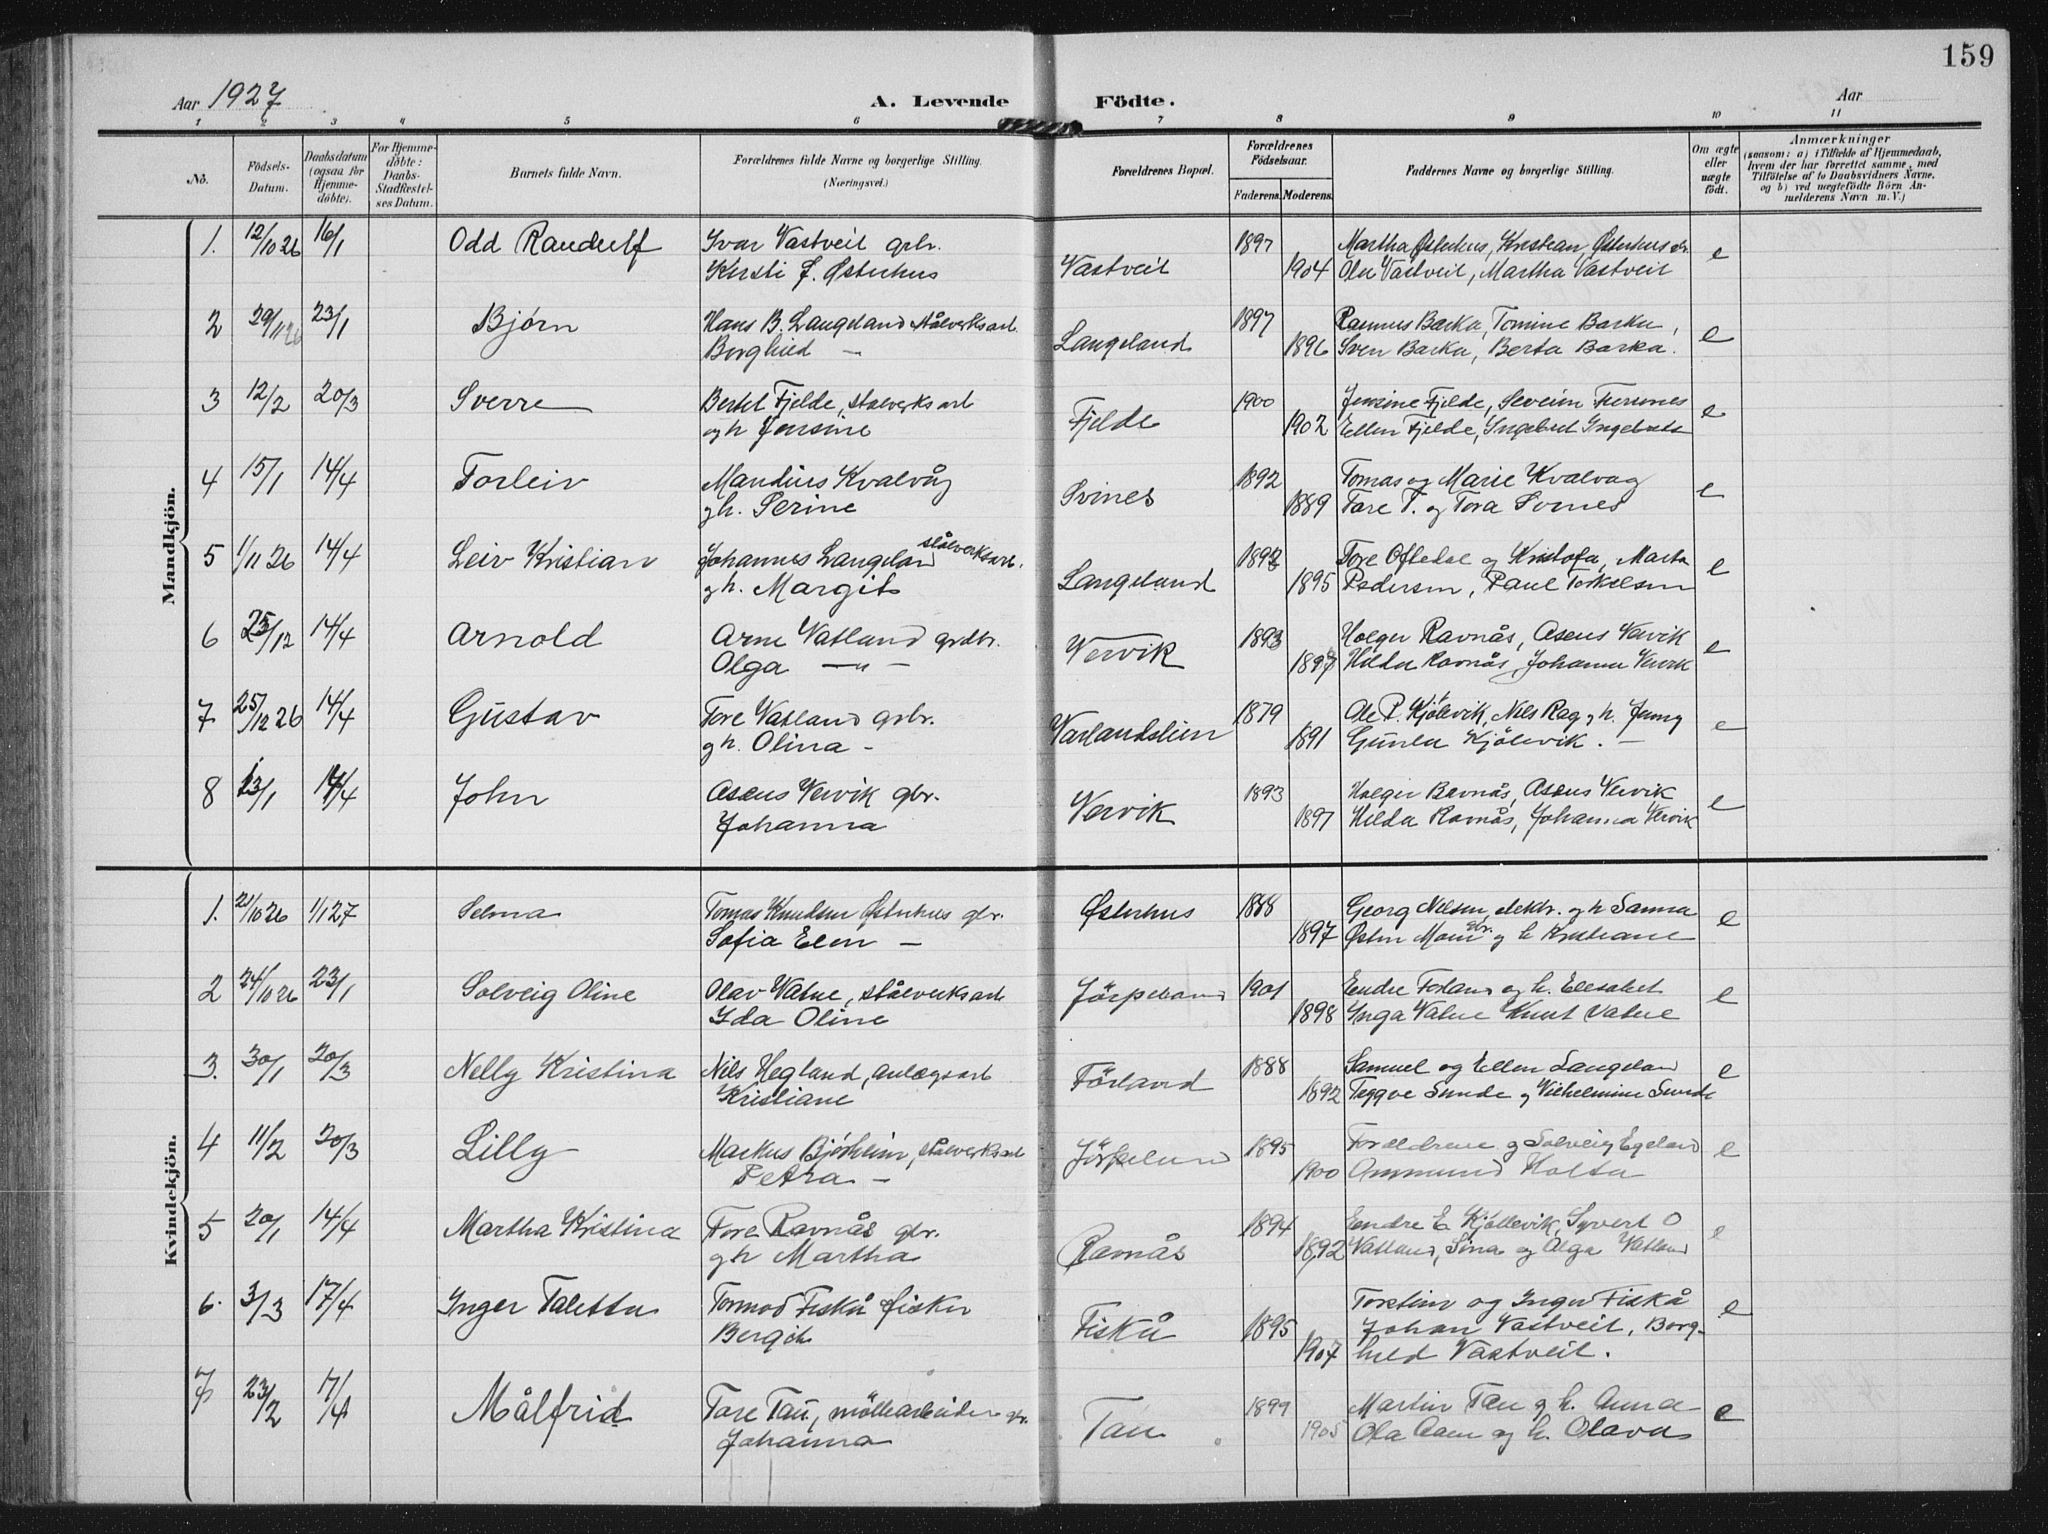 159
Aar 1927 A. Levende Födte. Aar
1 2 3 4 5 6 7 8 9 10 11
No.
Födsels-Datum.
Daabsdatum (ogsaa for Hjemme-döbte).
For Hjemme-döbte: Daabs-Stadfæstel-ses Datum.
Barnets fulde Navn.
Forældrenes fulde Navne og borgerlige Stilling.
(Næringsvei.)
Forældrenes Bopæl.
Forældrenes Födselsaar.
Faderens. Moderens.
Faddernes Navne og borgerlige Stilling.
Om ægte eller uægte födt.
Anmærkninger
(saasom: a) i Tilfælde af Hjemmedaab,
hvem der har forrettet samme, med
Tilföielse af to Daabsvidners Navne,
og b) ved uægtefödte Börn An-
melderens Navn m. V.)
Mandkjön.
1. 12/10 26 16/1 Odd Randulf Ivar Vastveit gbr. 1897 Martha Østerhus, Kristian Østerhus
Kirsti J. Østerhus Vastveit 1904 Vastveit, Martha Vastveit e
2 29/11 26 23/1 Bjørn Hans B. Langeland Stålverksarb. 1897 Rasmus Barka, Tomine Barka,
Borghild — Langeland 1896 Sven Barka, Berta Barka. e
3 12/2 20/3 Sverre Bertel Fjelde, stalverksarb 1900 Jensine Fjelde, Severin
og h Jensine Fjelde 1902 Ellen Fjelde, Ingebret e
4 15/1 14/4 Torleiv Mandius Kvalvåg 1892 Tomas og Marie Kvalvag
g h. Serine Svines 1889 Tore T. og Tora Svines e
5 1/11 26 14/4 Leiv Kristian Johannes Langeland stålverksarb. 1892 Tore Oftedal og Kristofa, Marta
g h. Margit Langeland 1895 Pedersen, Paul Torkelsen e
6 25/12 14/4 Arnold Arne Vatland grdbr. 1893 Holger Ravnås, Asens Vervik
Olga — " — Vervik 1897 Hilda Ravnås, Johanna Vervik e
7 25/12 26 14/4 Gustav Tore Vatland grbr. 1879 Ole P. Kjölevik, Nils Rag g h. Jenny
g h. Olina — Vatlandslien 1891 Gunla Kjölevik. — e
8 13/1 14/4 John Asens Vervik gbr. 1893 Holger Ravnås, Asens Vervik
Johanna Vervik 1897 Hilda Ravnås, Johanna Vervik e
Kvindekjön.
1. 21/10 26 1/1 27 Selma Tomas Knudsen Østerhus gbr. 1888 Georg Nilsen, elektr. og h Sanna
Sofia Elen — Østerhus 1897 Østen gbr. og h Kristiane e
2 24/10 26 23/1 Solveig Oline Olav Vatne, stålverksarb 1901 Endre og h. Elisabet
Ida Oline Jörpeland 1898 Inga Vatne Knut Vatne e
3. 30/1 20/3 Nelly Kristina Nils Hegland, anlægsarb 1888 Samuel og Ellen Langeland
Kristiane Förland 1892 Teggve Sunde og Vilhelmine Sunde e
4 11/2 20/3 Lilly Markus Bjørheim, stålverksarb 1895 Forældrene og Solveig Egeland
Petra — Jörpeland 1900 Ommund Holta e
5 20/1 14/4 Martha Kristina Tore Ravnås gbr. 1894 Endre E Kjøllevik, Syvert O
g h Martha Ravnås 1892 Vatland, Sina og Olga Vatland e
6. 3/3 17/4 Inger Taletta Tormod Fiskå fisker Torstein og Inger Fiskå
Bergit Fiskå 1895 Johan Vastveit, Borg- e
1907 hild Vastveit.
7 23/2 17/4 Målfrid Tore Tau, möllearbeider gbr. 1899 Martin Tau g h. Anna
Johanna Tau 1905 Ola Aaen og h. Olava e